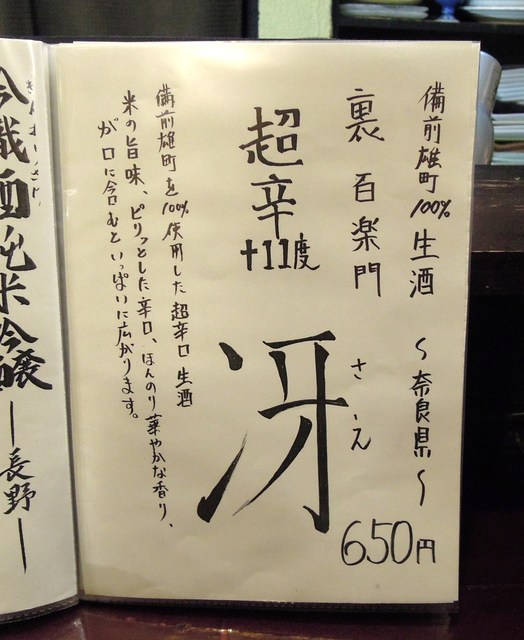 備前雄町100%生酒 〜奈良県〜
裏百楽門
さえ
冴
650円
超辛
+11度
備前雄町を100%使用した超辛口生酒
米の旨味、ピリッとした辛口、ほんのり華やかな香り、
が口に含むといっぱいに広がります。
酒純米吟醸
―長野―